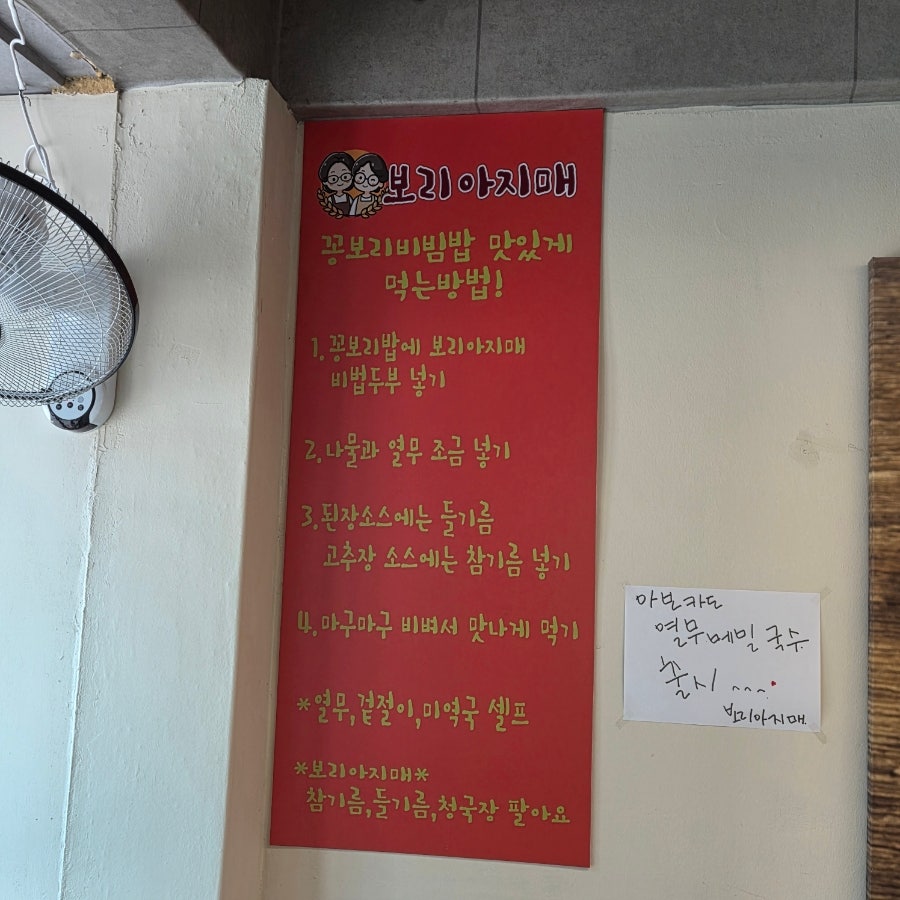 보리아지매
꽁보리비빔밥 맛있게
먹는방법!
1. 꽁보리밥에 보리아지매
비법두부 넣기
2. 나물과 열무 조금 넣기
3. 된장소스에는 들기름
고추장 소스에는 참기름 넣기
4. 마구마구 비벼서 맛나게 먹기
*열무,겉절이,미역국 셀프
*보리아지매*
참기름,들기름,청국장 팔아요
아보카도
열무메밀국수
출시 ....
보리아지매